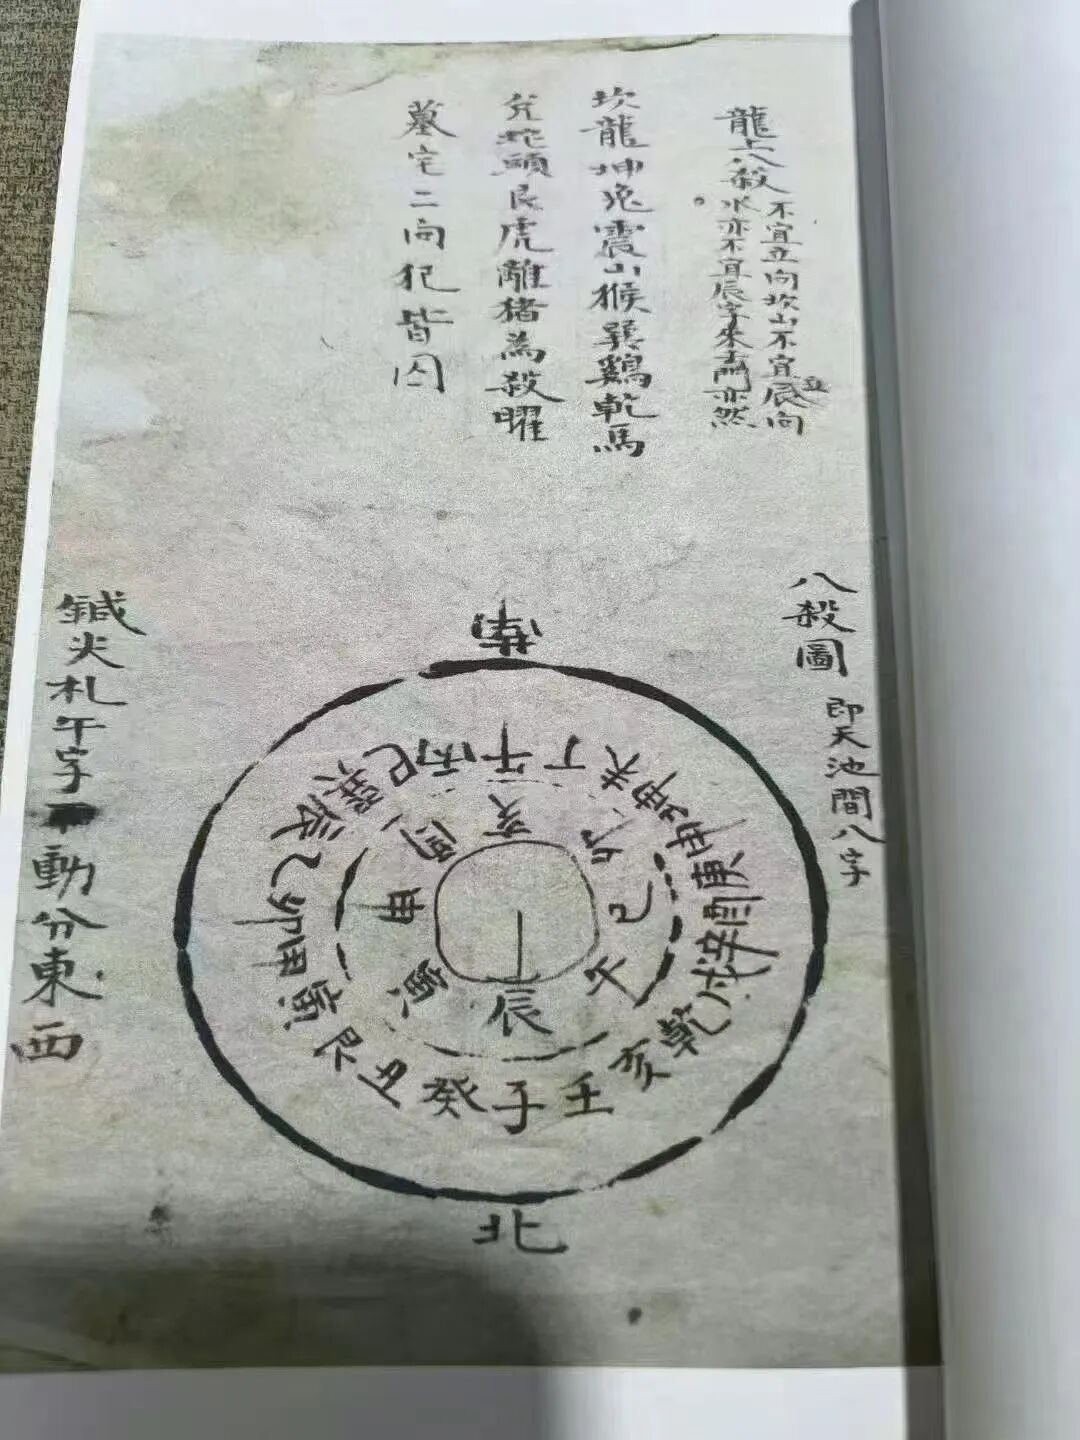 龍上八殺
不宜立向坎山不宜立辰向
水亦不宜辰字來門亦然
坎龍坤兔震山猴巽鷄乾馬
兌蛇頭艮虎離猪為殺曜
墓宅二向犯皆凶
八殺圖
即天池間八字
南
丁午丙巳巽辰乙卯甲寅艮丑癸子壬亥乾戌辛酉庚申坤未
亥卯巳午辰寅申酉
北
鍼尖札午字
動分東西